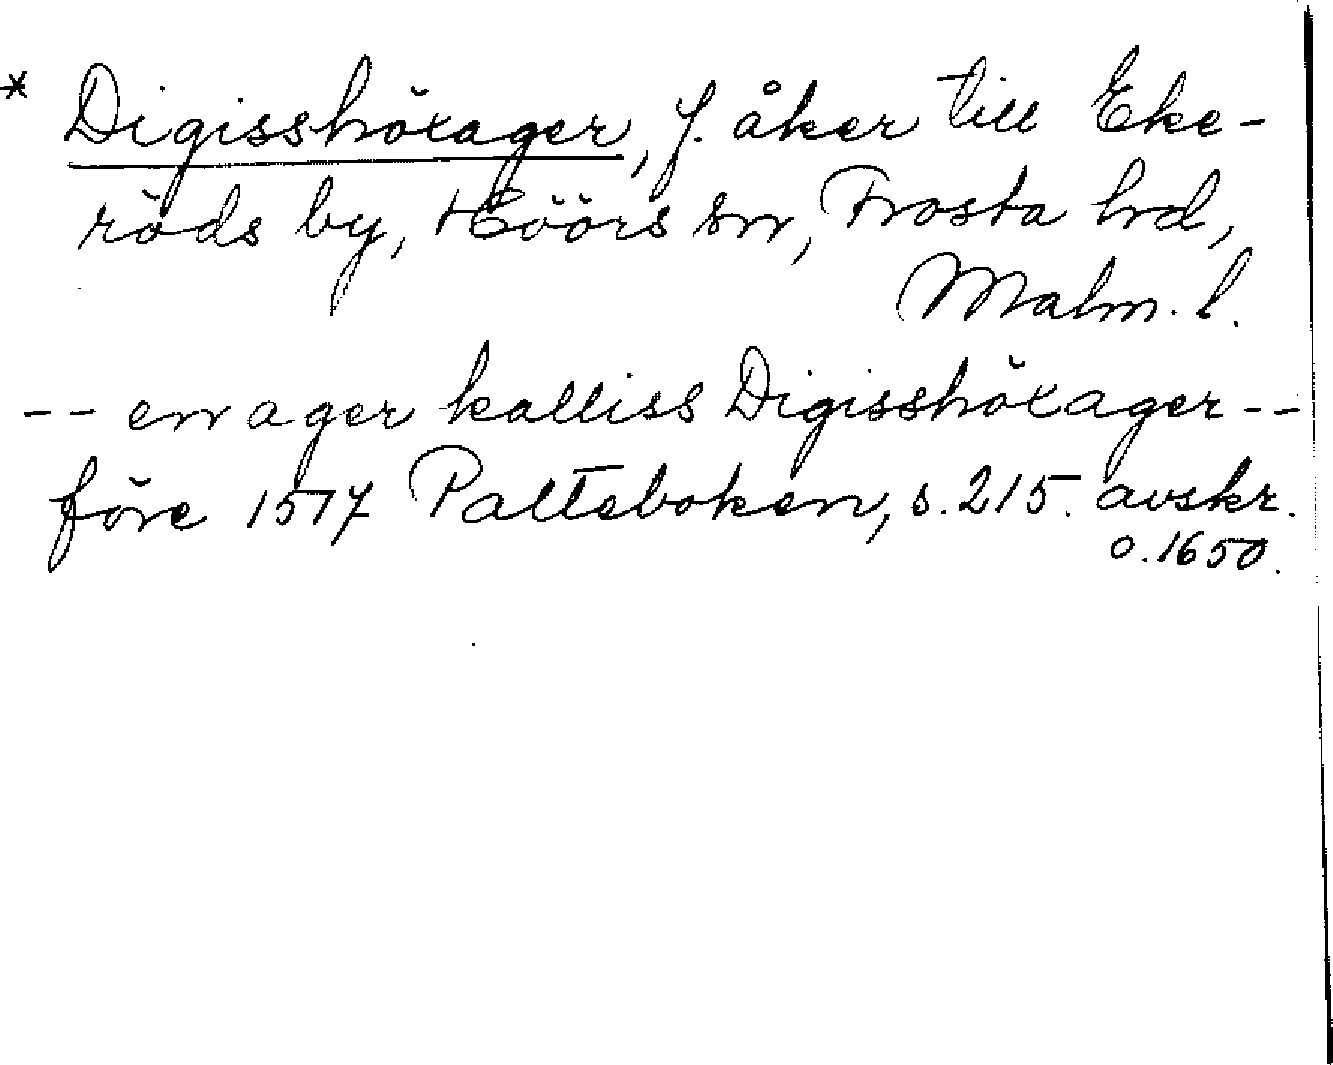 * Digisshöxager, f. åker till Eke-
röds by, Höörs sn, Frosta hd,
Malm. l.
-- en ager kalliss Digisshöxager --
före 1517 Palteboken, s. 215. avskr.
o. 1650.